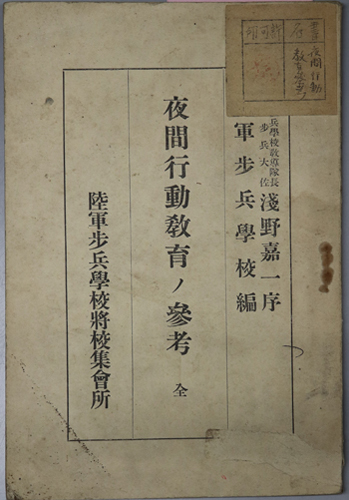 夜間行動
教育参考
兵學校敎導隊長
步兵大佐
淺野嘉一序
軍步兵學校編
夜間行動敎育ノ參考 全
陸軍步兵學校將校集會所